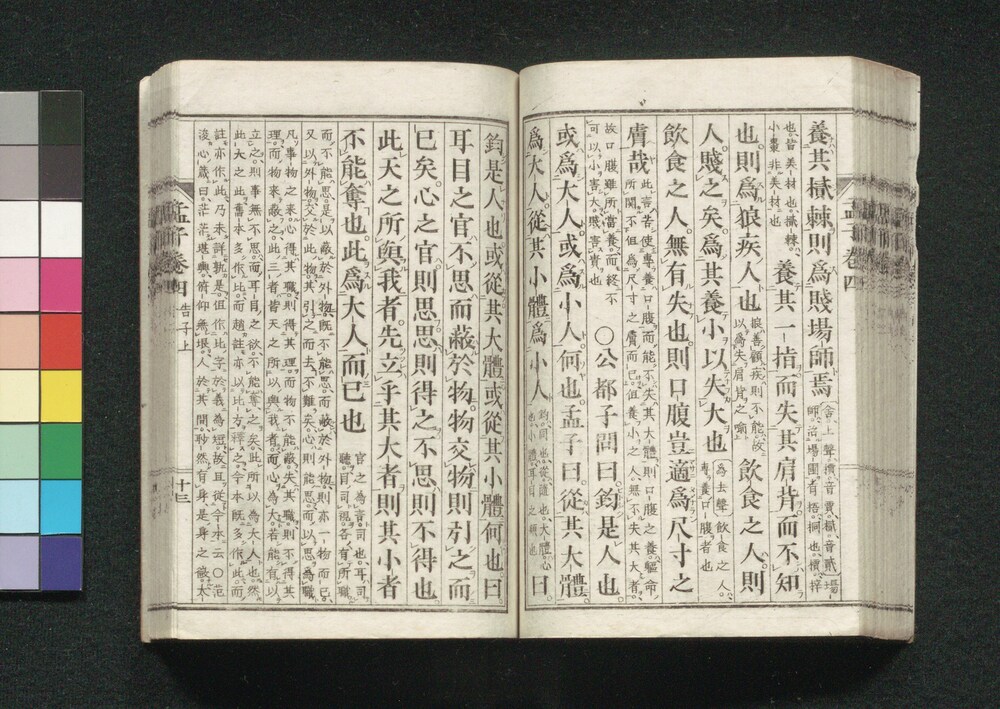 養其樲棘則爲賤場師焉 舍上聲檟音賈樲音貳場
師治場圃者梧桐也檟梓
也皆美材也樲棘
小棗非美材也 養其一指而失其肩背而不知
也則爲狼疾人也 狼善顧疾則不能故
以爲失肩背之喻 飲食之人則
人賤之矣爲其養小以失大也 爲去聲飲食之人
專養口腹者也
飲食之人無有失也則口腹豈適爲尺寸之
膚哉 此言若使專養口腹而能不失其大體則口腹之養軀命
所關不但爲尺寸之膚而已但養小之人無不失其大者
故口腹雖所當養而終不
可以小害大賤害貴也 〇公都子問曰鈞是人也
或爲大人或爲小人何也孟子曰從其大體
爲大人從其小體爲小人 鈞同也從隨也大體心
也小體耳目之類也 曰
鈞是人也或從其大體或從其小體何也曰
耳目之官不思而蔽於物物交物則引之而
已矣心之官則思思則得之不思則不得也
此天之所與我者先立乎其大者則其小者
不能奪也此爲大人而已也 官之爲言司也耳司
聽目司視各有所職
而不能思是以蔽於外物既不能思而蔽於外物則亦一物而已
又以外物交於此物其引之而去不難矣心則能思而以思爲職
凡事物之來心得其職則得其理而物不能蔽失其職則不得其
理而物來蔽之此三者皆天之所以與我者而心爲大若能有以
立之則事無不思而耳目之欲不能奪之矣此所以爲大人也然
此天之此舊本多作比而趙註亦以比方釋之今本既多作此而
註亦作此乃未詳孰是但作比字於義爲短故且從今本云〇范
浚心箴曰茫茫堪輿俯仰無垠人於其間眇然有身是身之微太
孟子卷四 告子上 十三
孟子卷四